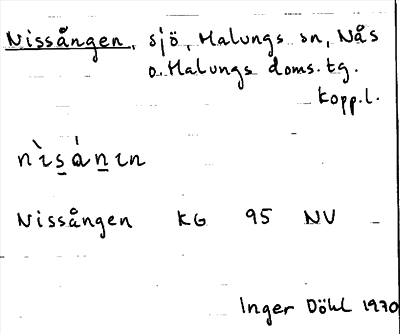 Nissången, sjö, Malungs sn, Nås
o. Malungs doms. tg.
Kopp.l.
nìs̲ȧ́n̲ın
Nissången KG 95 NV
Inger Döhl 1970